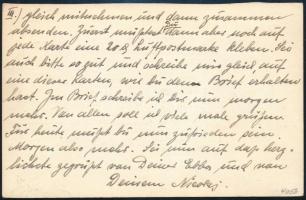 III.) gleich mitnehmen und dann zusammen
absenden. Zuerst müsstest Du dann aber noch auf
jede Karte eine 20 g Luftpostmarke kleben. Sei
auch bitte so gut und schreibe mir gleich auf
eine dieser Karten, wie du den Brief erhalten
hast. Im Brief schreibe ich dir nun morgen
mehr. Von allen soll ich viele male grüßen.
Für heute mußt du nun zufrieden sein.
Morgen also mehr. Sei nun auf das herz-
lichste gegrüßt von Deiner und von
Deinem